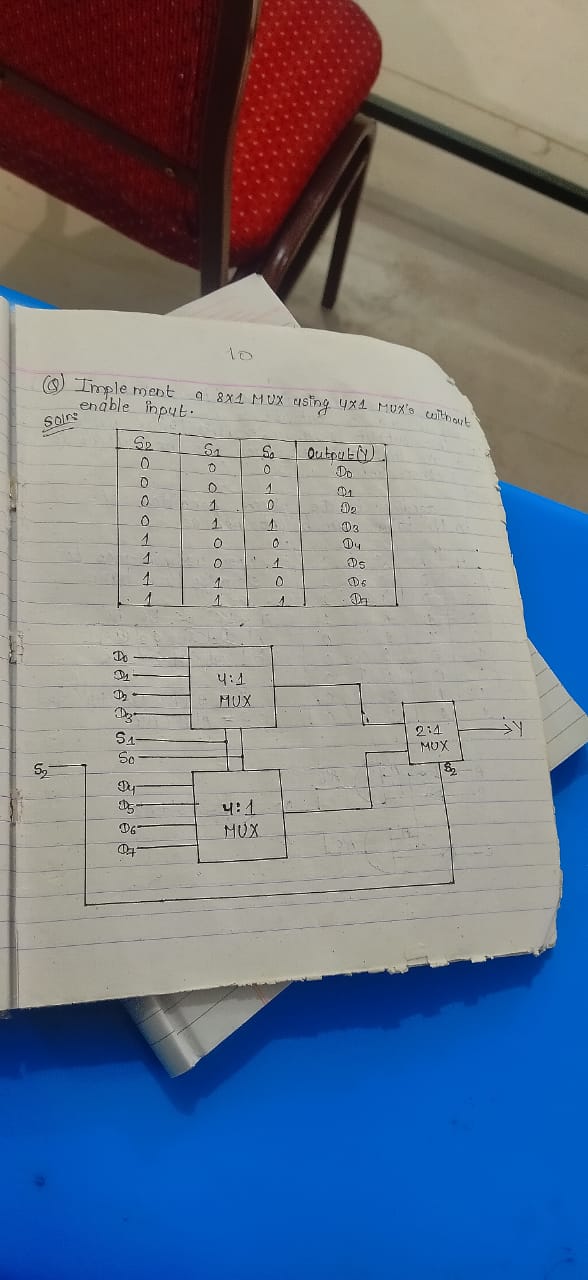 10
(Q) Implement a 8x1 MUX using 4x1 MUX's without
enable input.
Soln:
S2 S1 S0 Output(Y)
0 0 0 D0
0 0 1 D1
0 1 0 D2
0 1 1 D3
1 0 0 D4
1 0 1 D5
1 1 0 D6
1 1 1 D7
D0
D1
D2
D3
4:1
MUX
S1
S0
S2
D4
D5
D6
D7
4:1
MUX
2:1
MUX
S2
Y